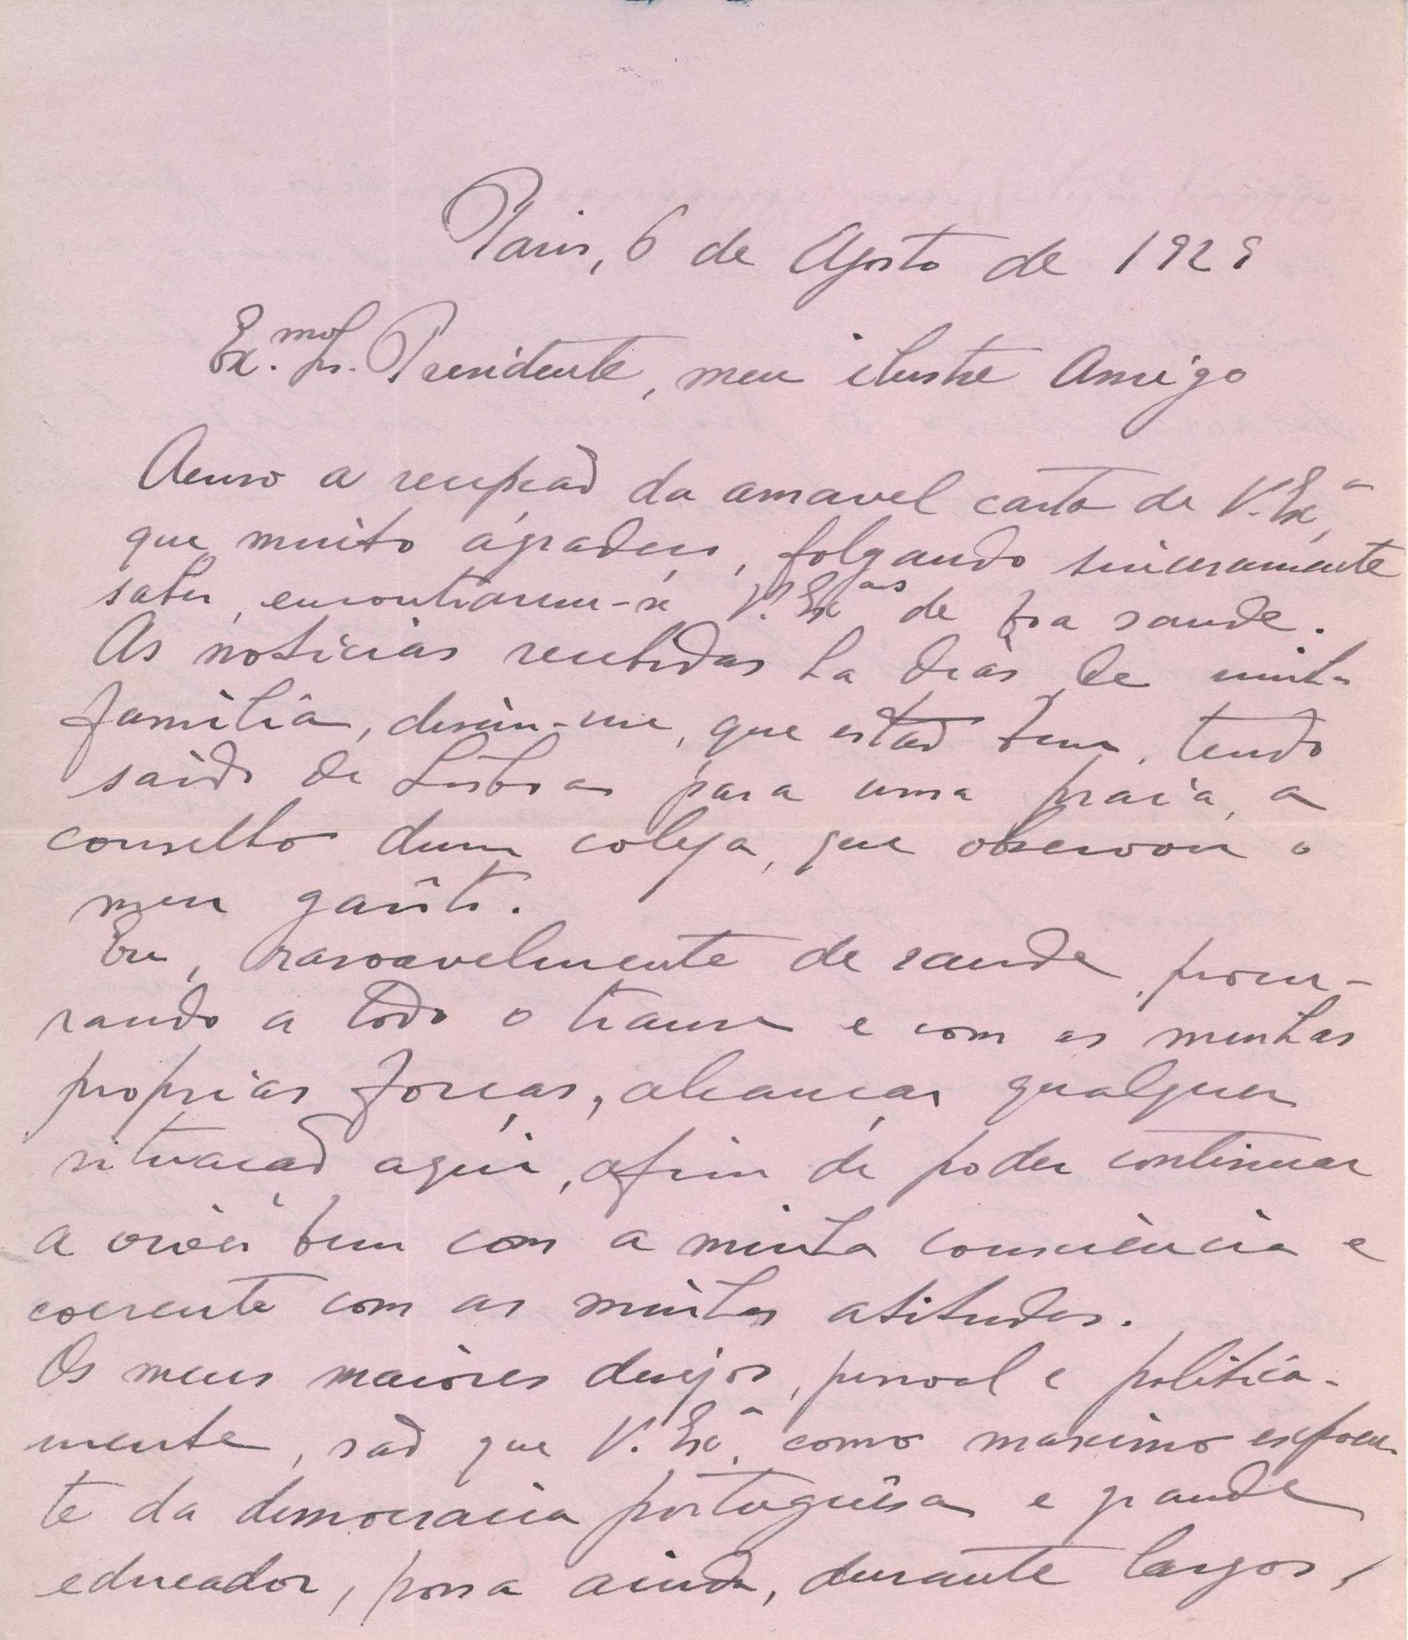 Paris, 6 de Agosto de 1929
Ex.mo Sr. Presidente, meu ilustre Amigo
Acuso a recepção da amavel carta de V. Exª,
que muito agradeço, folgando sinceramente
saber, encontrarem-se V. Exas de boa saude.
As noticias recebidas ha dias de minha
familia, dizem-me, que estão bem, tendo
saido de Lisboa para uma praia, a
conselho dum colega, que observou o
meu garôto.
Eu, rasoavelmente de saude, procu-
rando a todo o transe e com as minhas
proprias forças, alcançar qualquer
situação aqui, afim de poder continuar
a viver bem com a minha consciência e
coerente com as minhas atitudes.
Os meus maiores desejos, pessoal e politica-
mente, são que V. Exª, como maximo expoen-
te da democracia portuguêsa e grande
educador, possa ainda, durante largos,